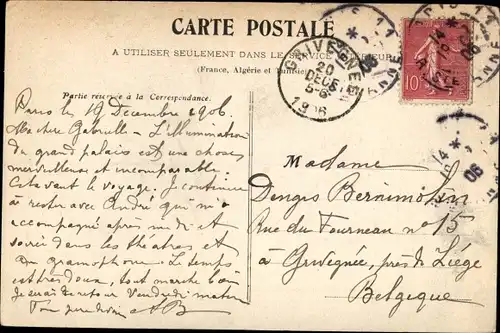 CARTE POSTALE
A UTILISER SEULEMENT DANS LE SERVICE
(France, Algérie et Tunisie)
Partie réservée à la Correspondance.
20
DÉC
1906
10
14
06
Paris le 19 Décembre 1906
Ma chère Gabrielle - L'illumination
du grand palais est une chose
merveilleuse et incomparable.
Cela vaut le voyage. Je continue
à rester avec André qui m'a
accompagné après midi et
soirée dans les théâtres et
au gramophone. Le temps
est très doux, tout marche bien
Je serai de retour Vendredi matin
Madame
Denges Bernimolin
Rue du Fourneau no 15
à Grivegnée, près de Liège
Belgique